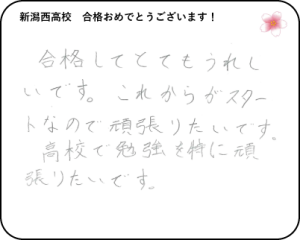 新潟西高校　合格おめでとうございます！
合格してとてもうれし
いです。これからがスター
トなので頑張りたいです。
高校で勉強を特に頑
張りたいです。